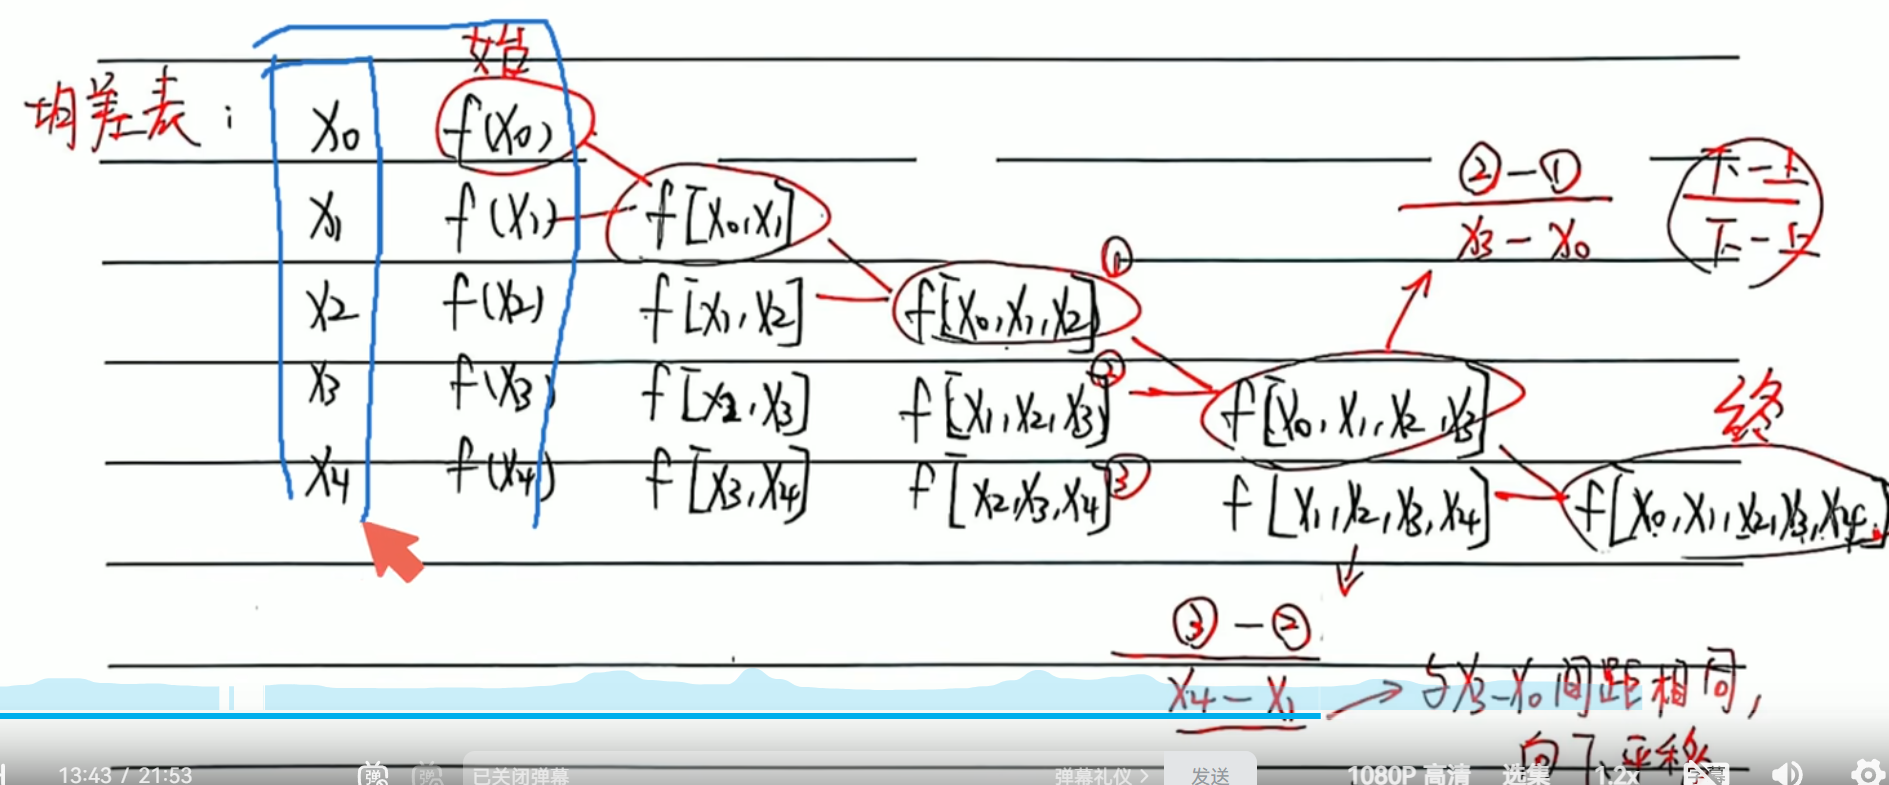 始
均差表：
x₀ f(x₀)
② - ①
x₃ - x₀
下-上
下-上
x₁ f(x₁) f[x₀,x₁]
①
x₂ f(x₂) f[x₁,x₂] f[x₀,x₁,x₂]
②
x₃ f(x₃) f[x₂,x₃] f[x₁,x₂,x₃] f[x₀,x₁,x₂,x₃]
终
③
x₄ f(x₄) f[x₃,x₄] f[x₂,x₃,x₄] f[x₁,x₂,x₃,x₄] f[x₀,x₁,x₂,x₃,x₄]
③ - ②
x₄ - x₁ 与x₃-x₀间距相同，
向下平移
13:43 / 21:53 弹 弹 已关闭弹幕 弹幕礼仪 > 发送 1080P 高清 选集 1.2x 字幕